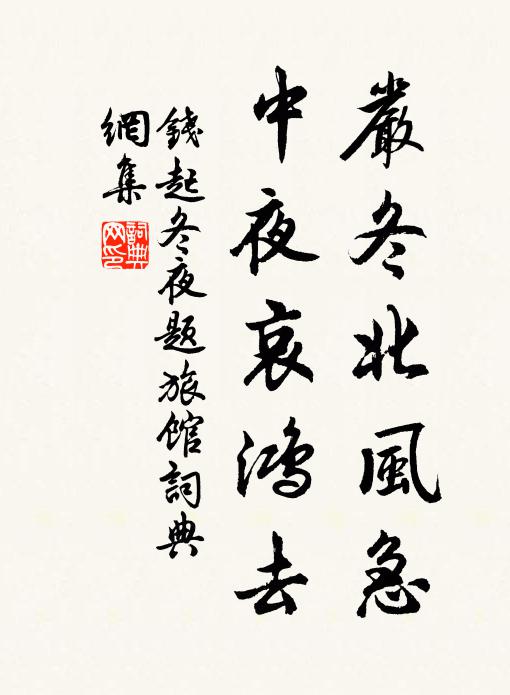 嚴冬北風急
中夜哀鴻去
錢起冬夜題旅館詞典
網集
詞典网印